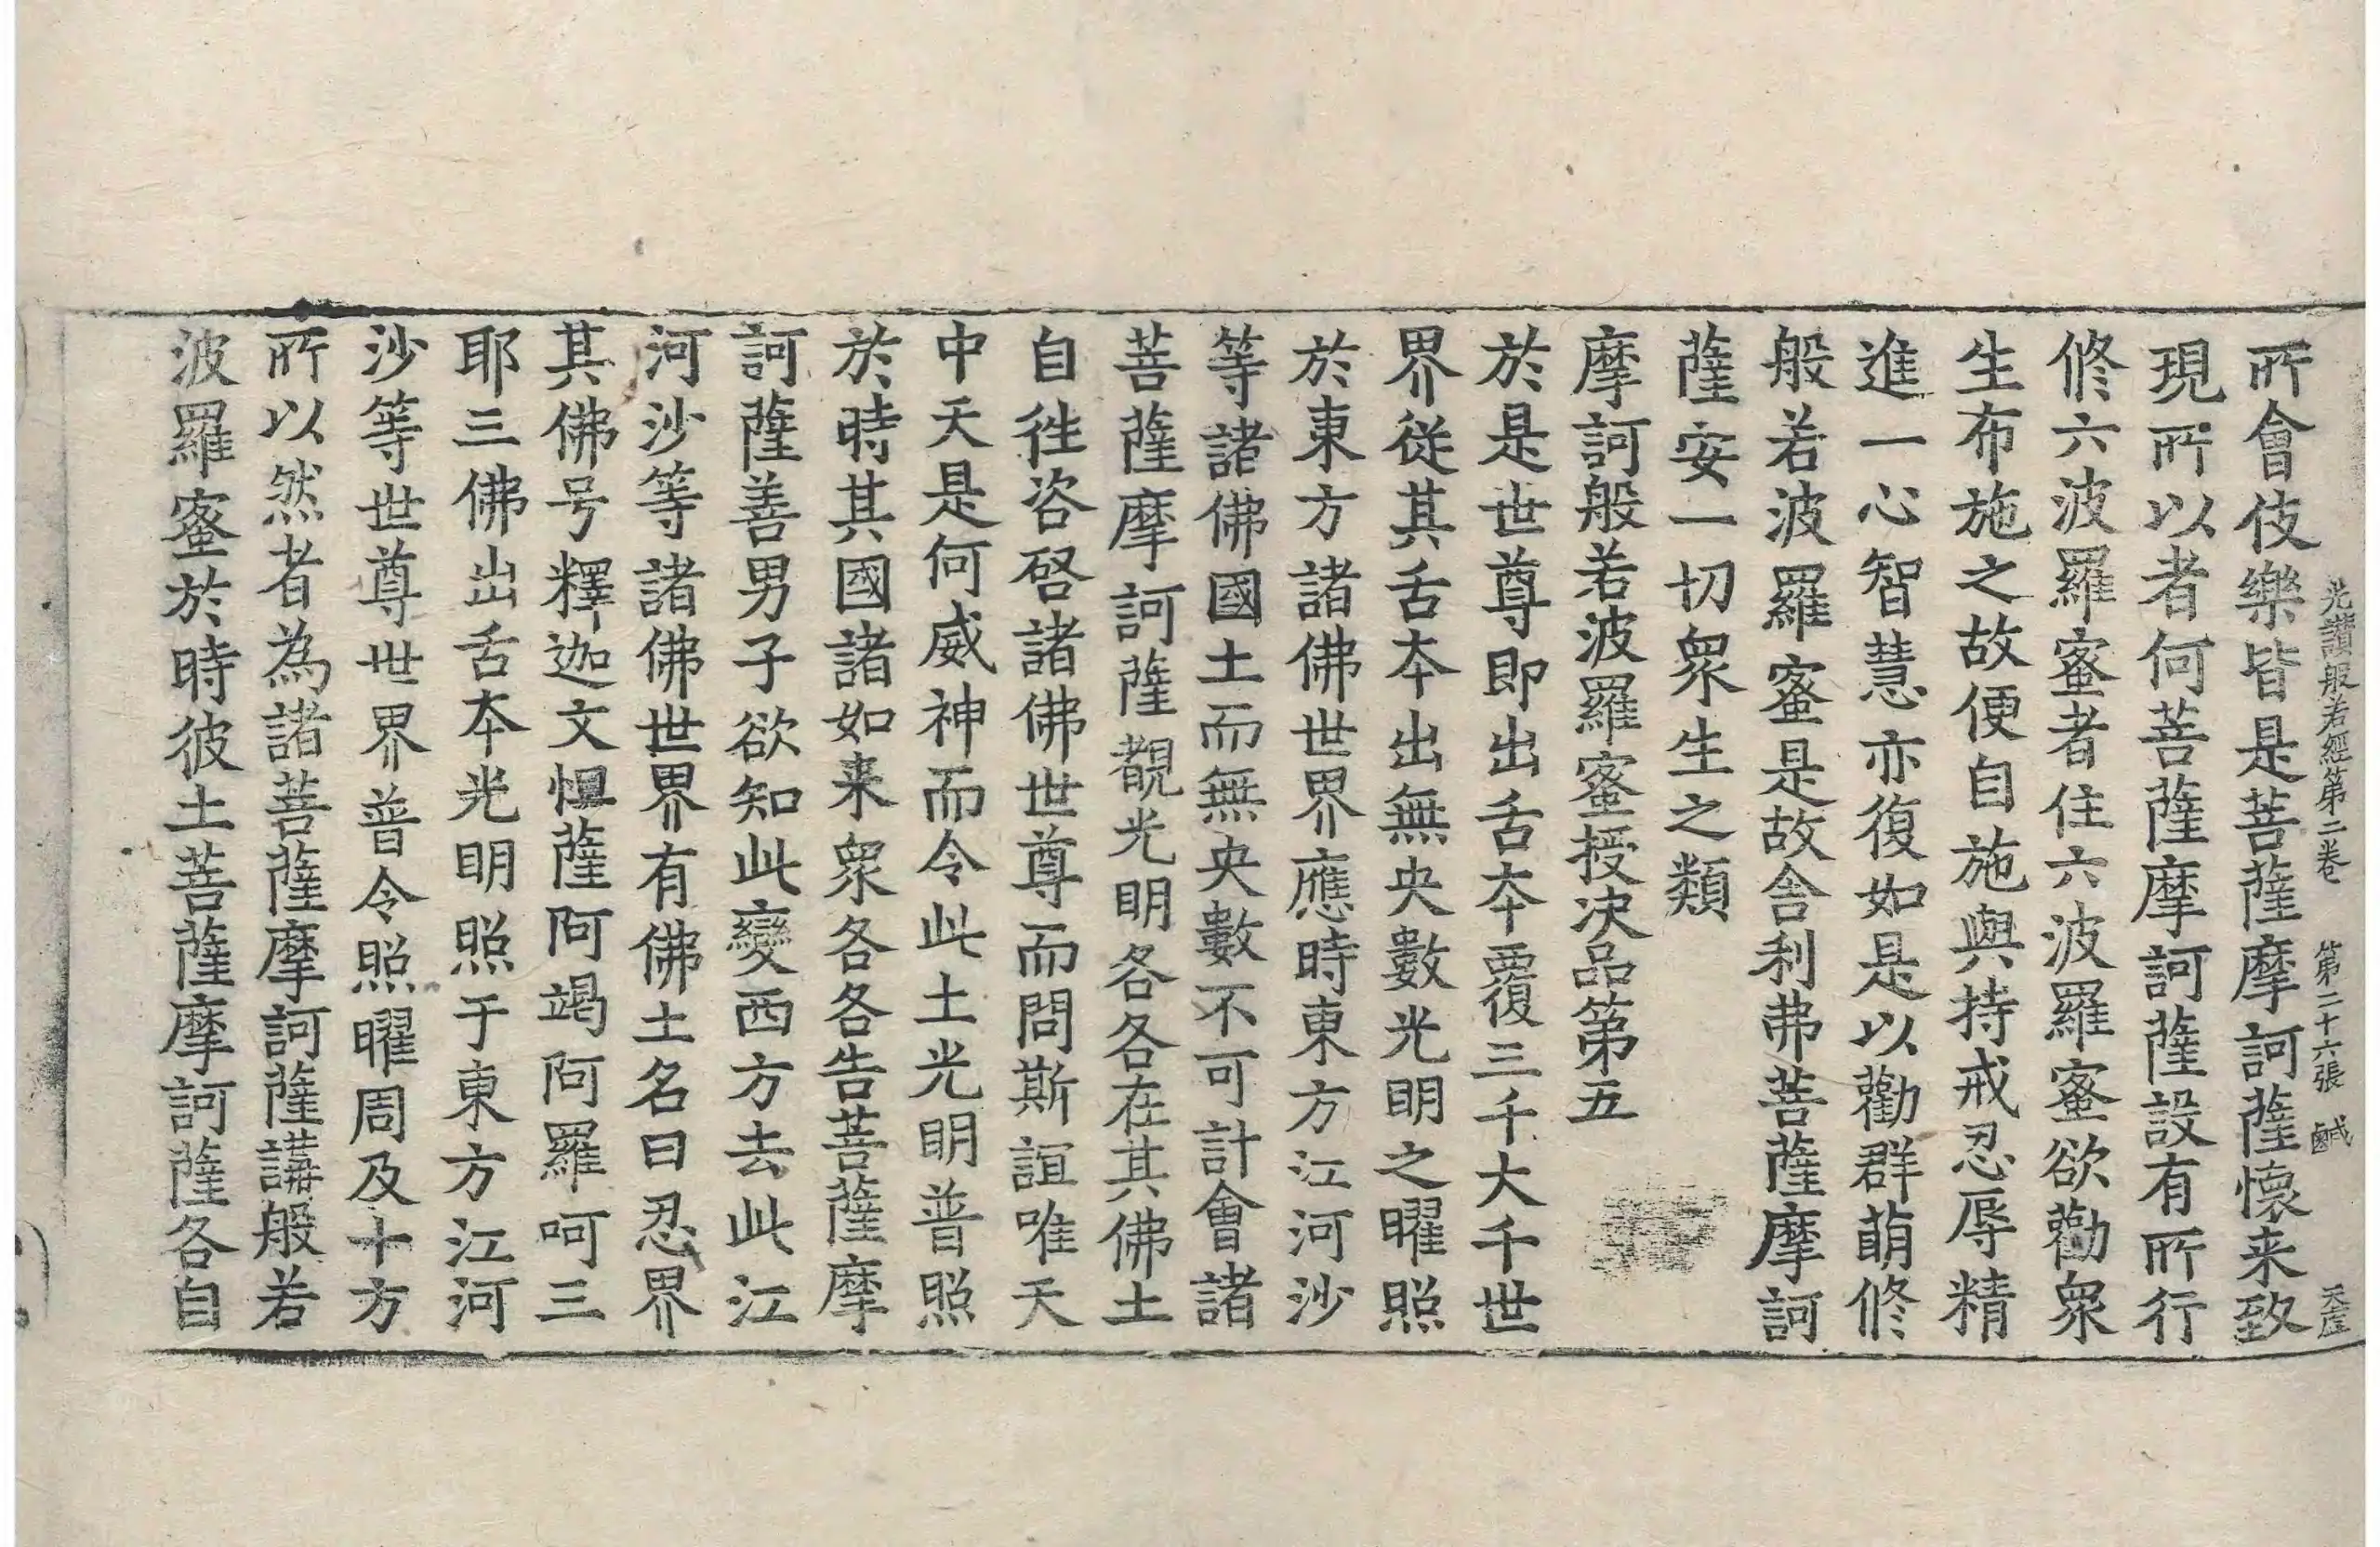 光讃般若經第二卷 第二十六張 鹹 天崖
所會伎樂皆是菩薩摩訶薩懷来致
現所以者何菩薩摩訶薩設有所行
修六波羅蜜者住六波羅蜜欲勸衆
生布施之故便自施與持戒忍辱精
進一心智慧亦復如是以勸群萌修
般若波羅蜜是故舍利弗菩薩摩訶
薩安一切衆生之類
摩訶般若波羅蜜授决品第五
於是世尊即出舌本覆三千大千世
界從其舌本出無央數光明之曜照
於東方諸佛世界應時東方江河沙
等諸佛國土而無央數不可計會諸
菩薩摩訶薩覩光明各各在其佛土
自徃咨啓諸佛世尊而問斯誼唯天
中天是何威神而令此土光明普照
於時其國諸如来衆各各告菩薩摩
訶薩善男子欲知此變西方去此江
河沙等諸佛世界有佛土名曰忍界
其佛号釋迦文怛薩阿竭阿羅呵三
耶三佛出舌本光明照于東方江河
沙等世尊世界普令照曜周及十方
所以然者為諸菩薩摩訶薩講般若
波羅蜜於時彼土菩薩摩訶薩各自